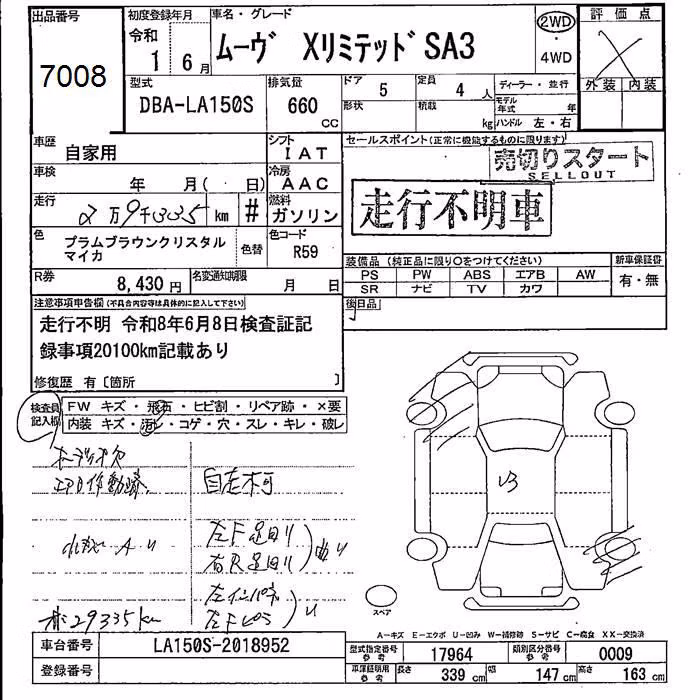 出品番号
7008
初度登録年月
令和
1 6月
車名・グレード
ムーヴ XリミテッドSA3
2WD
・
4WD
評価点
外装 内装
型式
DBA-LA150S
排気量
660
CC
ドア 5
形状
定員 4 人
積載 kg
ディーラー・並行
モデル年式 年
ハンドル 左・右
車歴
自家用
シフト
IAT
車検
年 月( 日)
冷房
AAC
走行
2万9千335 km #
燃料
ガソリン
色
プラムブラウンクリスタル
マイカ
色替
色コード
R59
R券
8,430円
名変通知期限
月 日
セールスポイント(正常に機能するものに限ります)
売切りスタート
SELLOUT
走行不明車
装備品(純正品に限り○をつけてください)
PS PW ABS エアB AW
SR ナビ TV カワ
新車保証書
有・無
後日品
注意事項申告欄(不具合内容等は具体的に記入して下さい)
走行不明 令和8年6月8日検査証記
録事項20100km記載あり
修復歴 有〔箇所 〕
検査員
記入欄
FW キズ・飛石・ヒビ割・リペア跡・×要
内装 キズ・汚レ・コゲ・穴・スレ・キレ・破レ
オーディオ欠
エアB作動跡
自走不可
左F足回り
右R足回り
曲り
左インパネ
29335km
U3
スペア
A―キズ E―エクボ U―凹み W―補修跡 S―サビ C―腐食 XX―交換済
車台番号
LA150S-2018952
登録番号
型式指定番号
参考
17964
類別区分番号
参考
0009
車庫証明用
参考
長さ 339 cm
幅 147 cm
高さ 163 cm